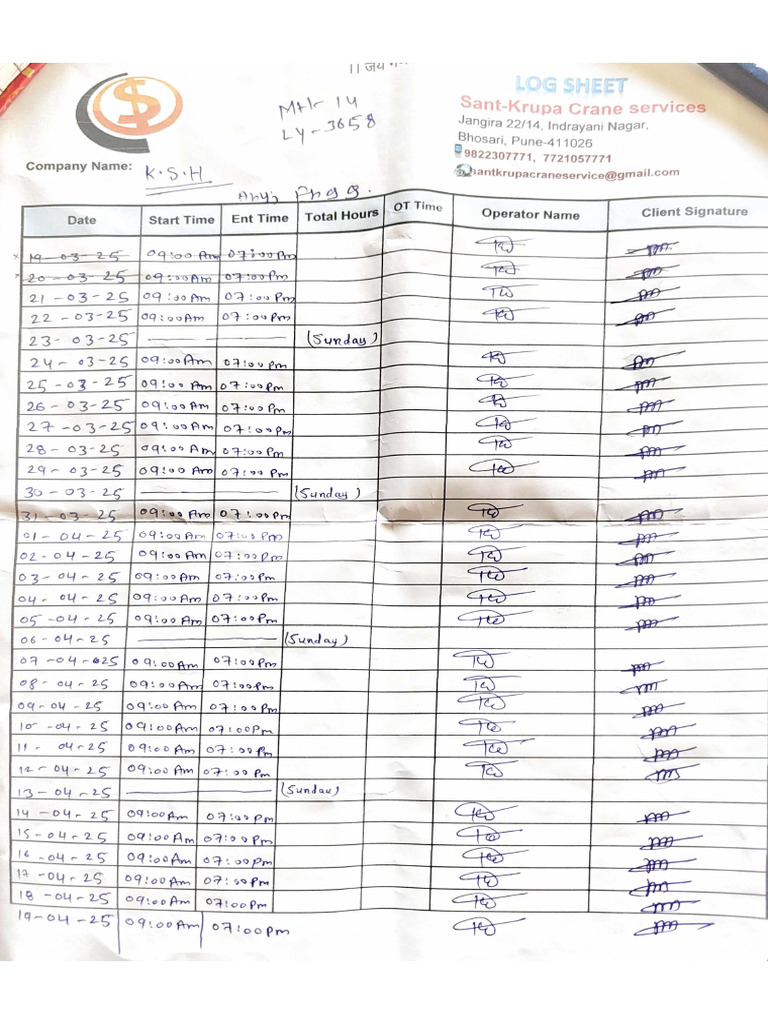 || जय
LOG SHEET
Sant-Krupa Crane services
Jangira 22/14, Indrayani Nagar,
Bhosari, Pune-411026
9822307771, 7721057771
santkrupacraneservice@gmail.com
MH-14
LY-3658
Company Name: K.S.H
Date Start Time Ent Time Total Hours OT Time Operator Name Client Signature
19-03-25 09:00Am 07:00Pm
20-03-25 09:00Am 07:00Pm
21-03-25 09:00Am 07:00Pm
22-03-25 09:00Am 07:00Pm
23-03-25 (Sunday)
24-03-25 09:00Am 07:00Pm
25-03-25 09:00Am 07:00Pm
26-03-25 09:00Am 07:00Pm
27-03-25 09:00Am 07:00Pm
28-03-25 09:00Am 07:00Pm
29-03-25 09:00Am 07:00Pm
30-03-25 (Sunday)
31-03-25 09:00Am 07:00Pm
01-04-25 09:00Am 07:00Pm
02-04-25 09:00Am 07:00Pm
03-04-25 09:00Am 07:00Pm
04-04-25 09:00Am 07:00Pm
05-04-25 09:00Am 07:00Pm
06-04-25 (Sunday)
07-04-025 09:00Am 07:00Pm
08-04-25 09:00Am 07:00Pm
09-04-25 09:00Am 07:00Pm
10-04-25 09:00Am 07:00Pm
11-04-25 09:00Am 07:00Pm
12-04-25 09:00Am 07:00Pm
13-04-25 (Sunday)
14-04-25 09:00Am 07:00Pm
15-04-25 09:00Am 07:00Pm
16-04-25 09:00Am 07:00Pm
17-04-25 09:00Am 07:00Pm
18-04-25 09:00Am 07:00Pm
19-04-25 09:00Am 07:00Pm